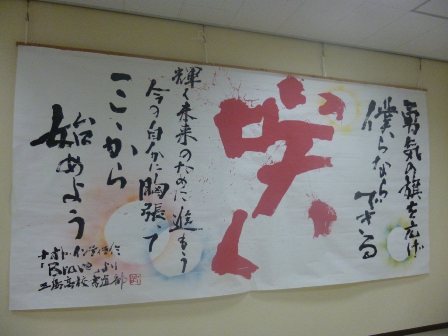 勇気の旗を広げ
僕らならできる
咲く
輝く未来のために進もう
今の自分に胸張って
ここから
始めよう
ナオト・インティライミ
「Brave」より
高校書道部